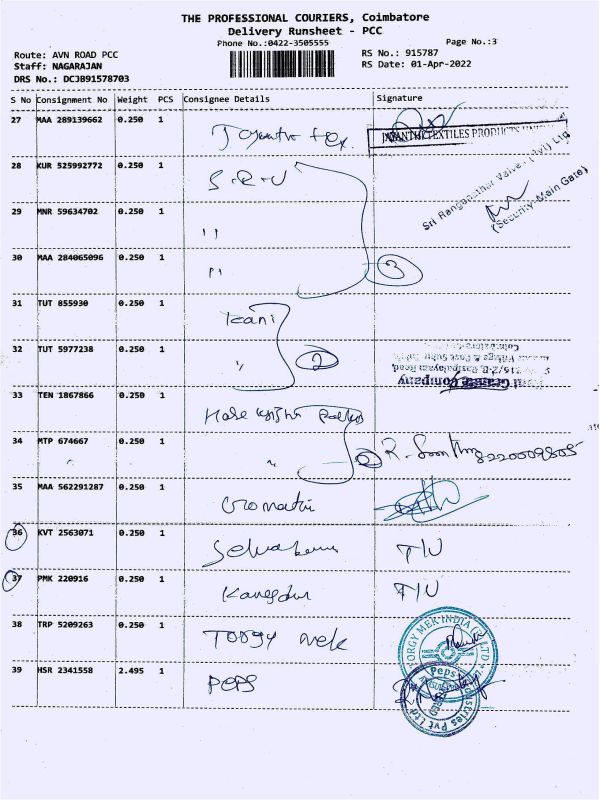 THE PROFESSIONAL COURIERS, Coimbatore
Delivery Runsheet - PCC
Phone No.:0422-3505555 Page No.:3
Route: AVN ROAD PCC RS No.: 915787
Staff: NAGARAJAN RS Date: 01-Apr-2022
DRS No.: DCJB91578703
S No Consignment No Weight PCS Consignee Details Signature
27 MAA 289139662 0.250 1
JAYANTHI TEXTILES PRODUCTS
28 KUR 525992772 0.250 1 S.R.V
Sri Ranganathar Valves (Pvt) Ltd
(Security Main Gate)
29 MNR 59634702 0.250 1 ,,
30 MAA 284065096 0.250 1 ,, 3
31 TUT 855930 0.250 1 Rani
32 TUT 5977238 0.250 1 ,, 2
Company
33 TEN 1867866 0.250 1
34 MTP 674667 0.250 1 ,, 2 8220009505
35 MAA 562291287 0.250 1
36 KVT 2563071 0.250 1 T/U
37 PMK 220916 0.250 1 T/U
38 TRP 5209263 0.250 1 TORGY Mek
TORGY MEK INDIA (P) LTD
39 HSR 2341558 2.495 1 PEPS
Peps Industries Pvt Ltd